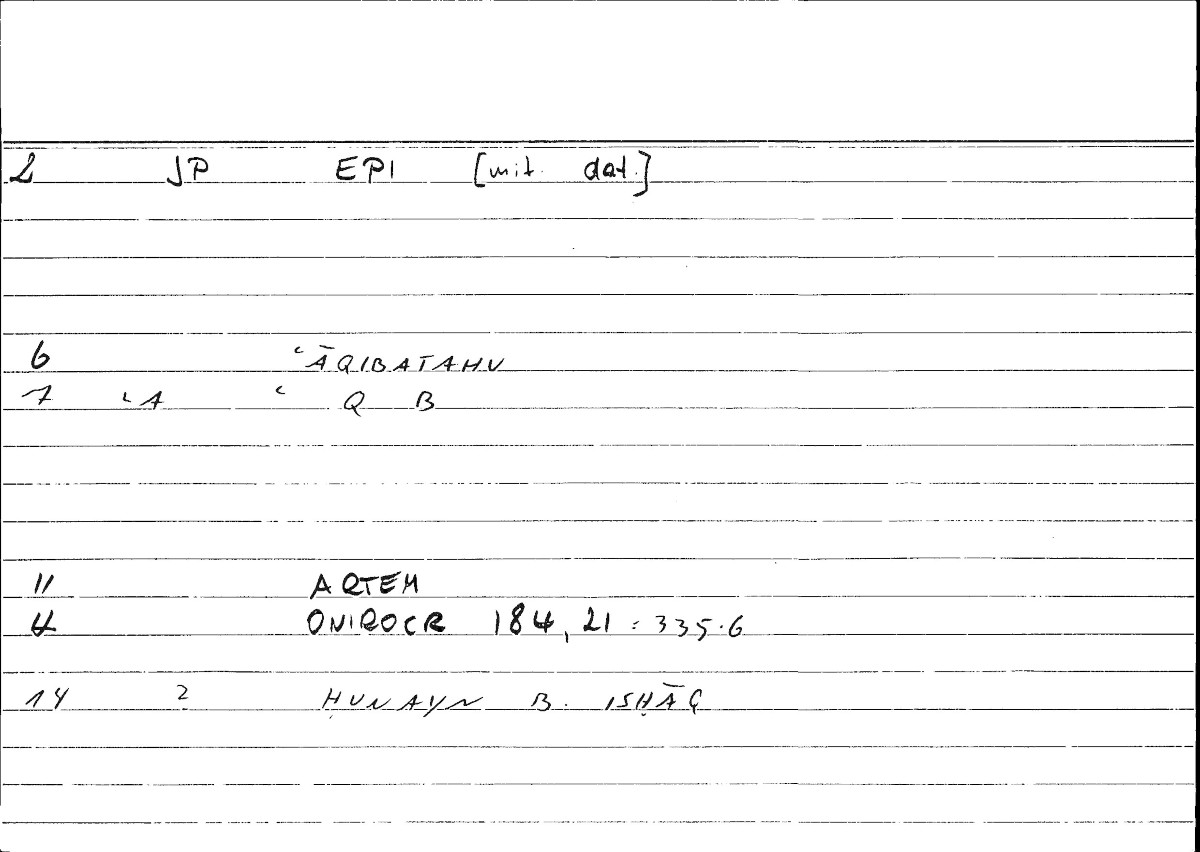 2 JP EPI [mit. dat.]
6 ʿĀQIBATAHU
7 ʿA ʿ Q B
11 ARTEM
4 ONIROCR 184, 21 = 335.6
14 2 ḤUNAYN B. ISḤĀQ